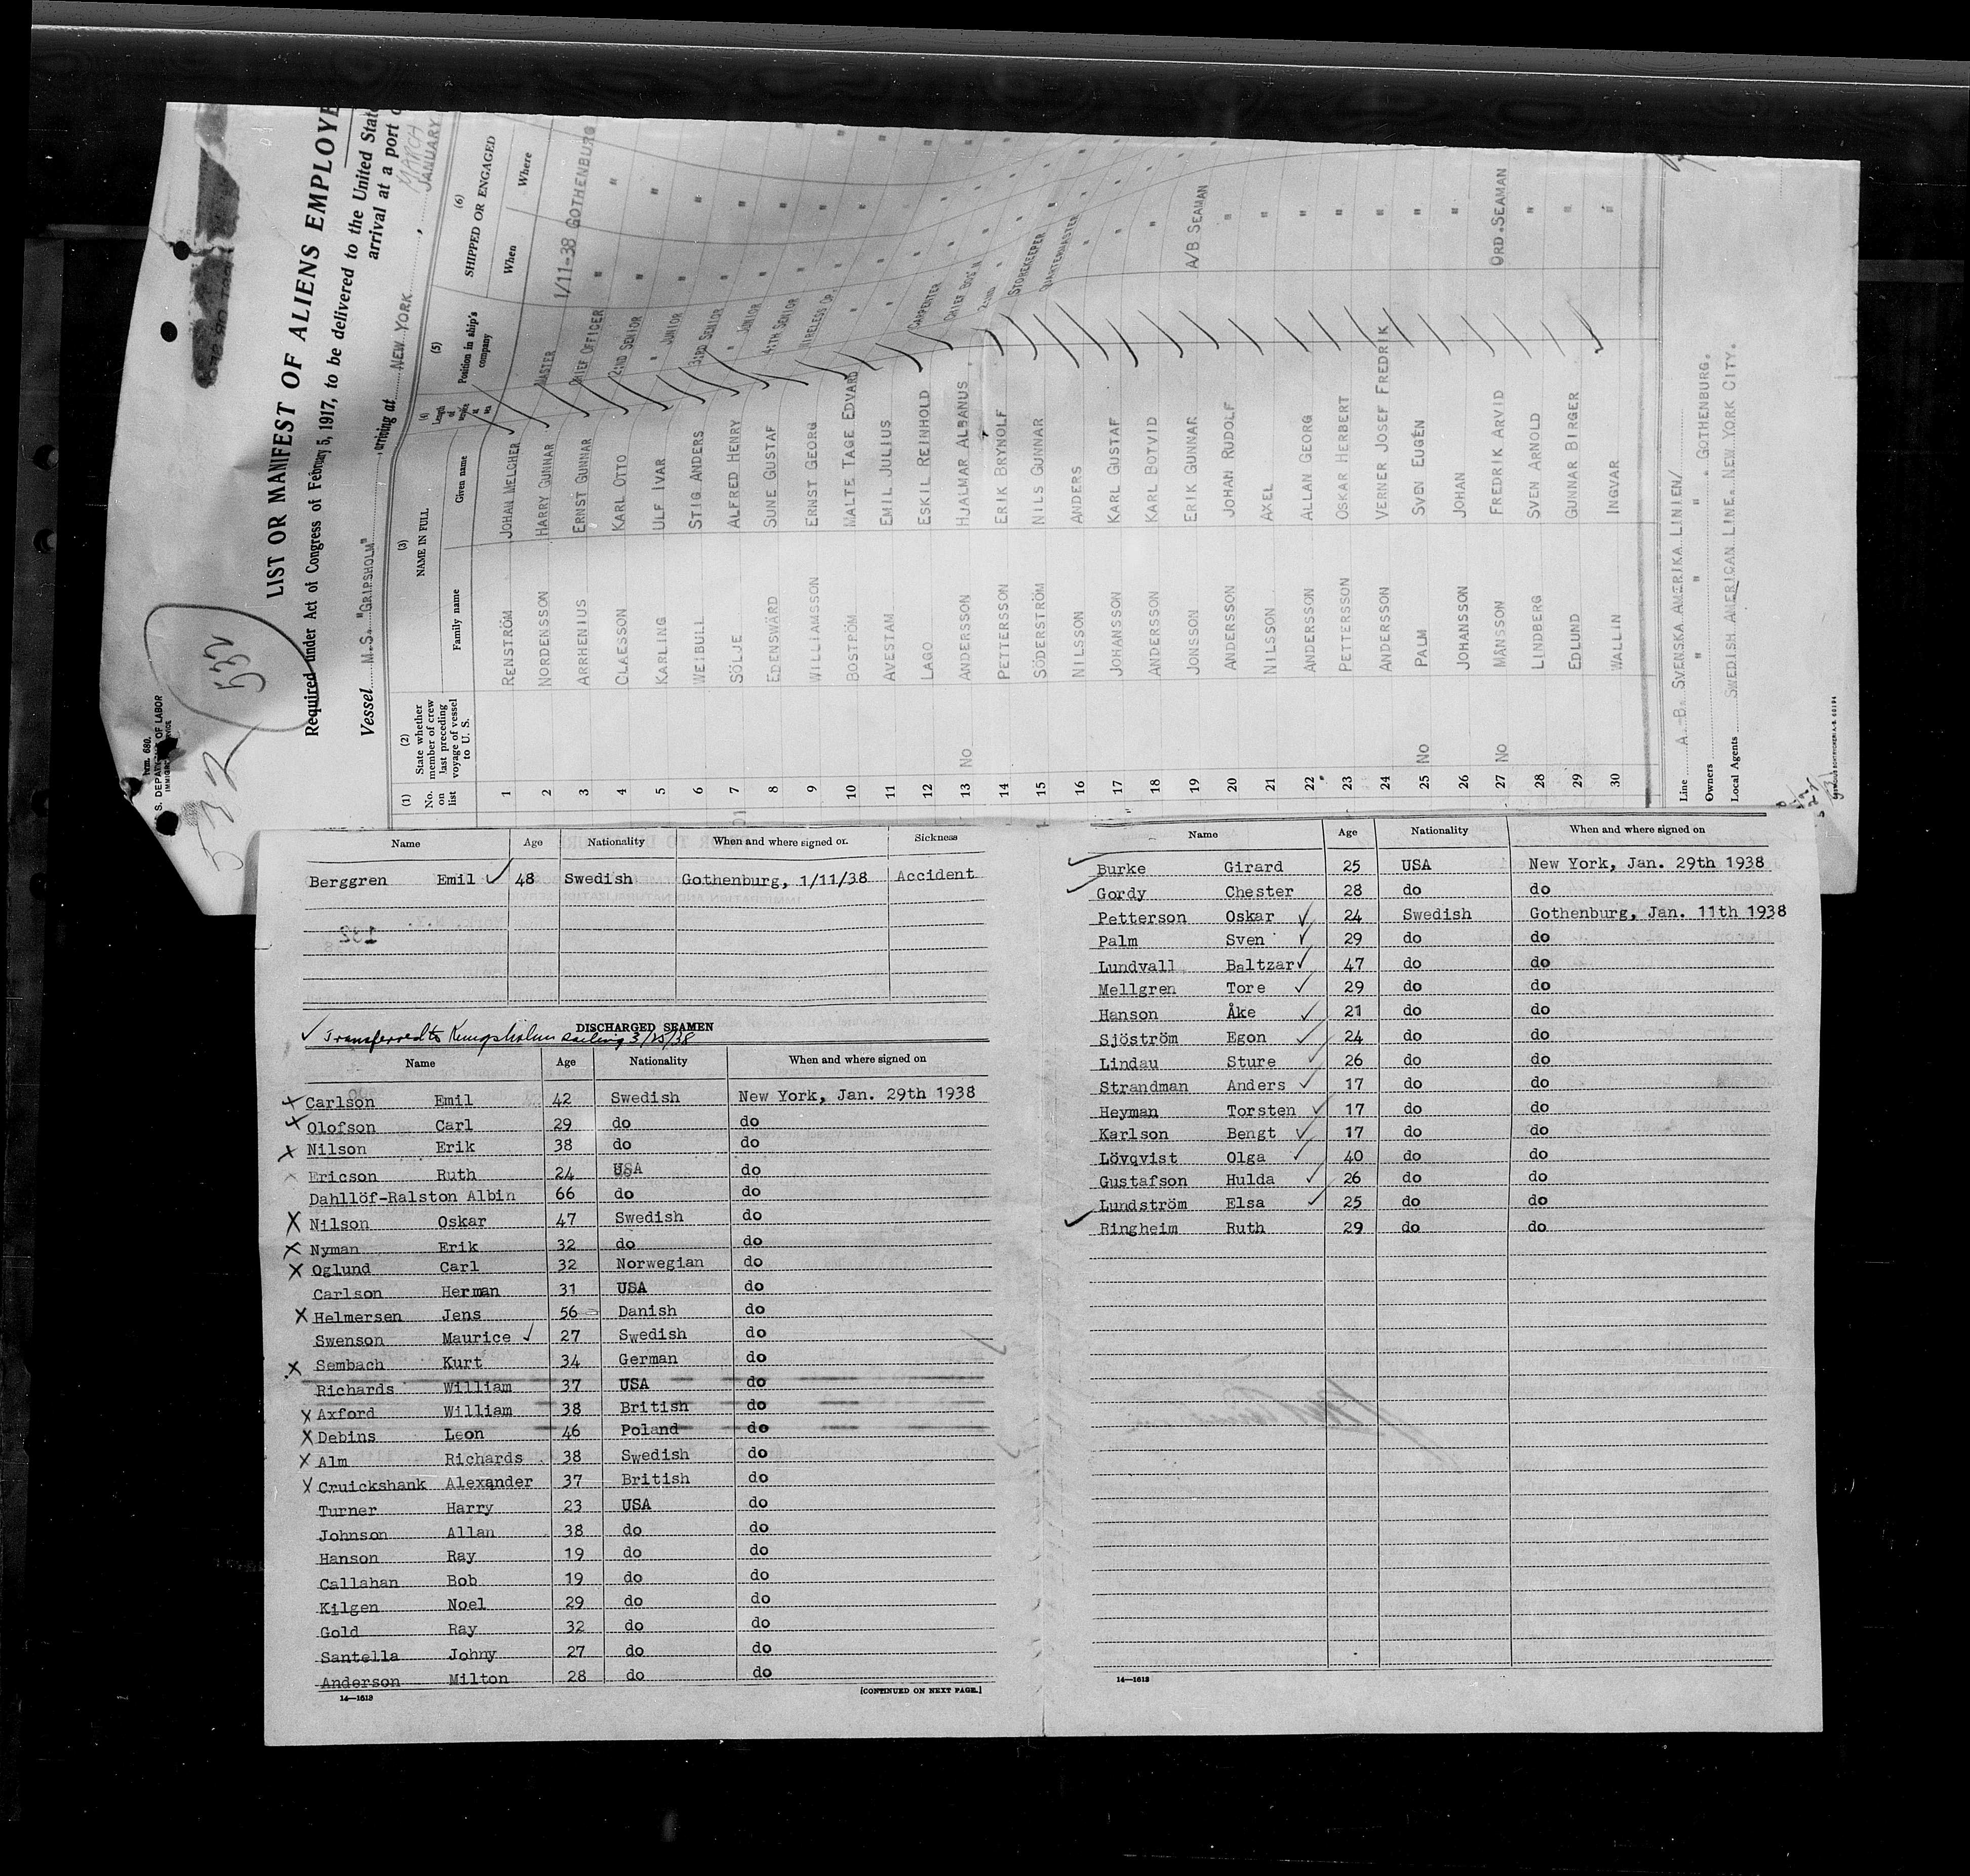 Form 680.
U. S. DEPARTMENT OF LABOR
IMMIGRATION SERVICE
532
532
LIST OR MANIFEST OF ALIENS EMPLOYE
Required under Act of Congress of February 5, 1917, to be delivered to the United State
arrival at a port o
Vessel M.S. "GRIPSHOLM" , arriving at NEW YORK , MARCH JANUARY
(1) No. on list (2) State whether member of crew last preceding voyage of vessel to U. S. (3) NAME IN FULL Family name Given name (4) Length of service at sea (5) Position in ship's company (6) SHIPPED OR ENGAGED When Where
1 RENSTRÖM JOHAN MELCHER MASTER 1/11-38 GOTHENBURG
2 NORDENSSON HARRY GUNNAR CHIEF OFFICER " "
3 ARRHENIUS ERNST GUNNAR 2:ND SENIOR " "
4 CLAESSON KARL OTTO " JUNIOR " "
5 KARLING ULF IVAR 3:RD SENIOR " "
6 WEIBULL STIG ANDERS " JUNIOR " "
7 SÖLJE ALFRED HENRY 4:TH SENIOR " "
8 EDENSWÄRD SUNE GUSTAF WIRELESS OP. " "
9 WILLIAMSSON ERNST GEORG " " "
10 BOSTRÖM MALTE TAGE EDVARD " " "
11 AVESTAM EMIL JULIUS CARPENTER " "
12 LAGO ESKIL REINHOLD CHIEF BOS'N " "
13 No ANDERSSON HJALMAR ALBANUS 2:ND " " "
14 PETTERSSON ERIK BRYNOLF STOREKEEPER " "
15 SÖDERSTRÖM NILS GUNNAR QUARTERMASTER " "
16 NILSSON ANDERS " "
17 JOHANSSON KARL GUSTAF " "
18 ANDERSSON KARL BOTVID " "
19 JONSSON ERIK GUNNAR A/B SEAMAN
20 ANDERSSON JOHAN RUDOLF "
21 NILSSON AXEL "
22 ANDERSSON ALLAN GEORG "
23 PETTERSSON OSKAR HERBERT "
24 ANDERSSON VERNER JOSEF FREDRIK "
25 No PALM SVEN EUGÉN "
26 JOHANSSON JOHAN "
27 No MÅNSSON FREDRIK ARVID ORD. SEAMAN
28 LINDBERG SVEN ARNOLD "
29 EDLUND GUNNAR BIRGER "
30 WALLIN INGVAR "
Line A.-B. SVENSKA AMERIKA LINIEN/
Owners " " " " GOTHENBURG.
Local Agents SWEDISH AMERICAN LINE. NEW YORK CITY.
Name Age Nationality When and where signed or. Sickness
Berggren Emil ✓ 48 Swedish Gothenburg, 1/11/38 Accident
✓ Transferred to Kungsholm sailing 3/25/38
DISCHARGED SEAMEN
Name Age Nationality When and where signed on
X Carlson Emil 42 Swedish New York, Jan. 29th 1938
X Olofson Carl 29 do do
X Nilson Erik 38 do do
X Ericson Ruth 24 USA do
Dahllöf-Ralston Albin 66 do do
X Nilson Oskar 47 Swedish do
X Nyman Erik 32 do do
X Oglund Carl 32 Norwegian do
Carlson Herman 31 USA do
X Helmersen Jens 56 Danish do
Swenson Maurice ✓ 27 Swedish do
X Sembach Kurt 34 German do
Richards William 37 USA do
X Axford William 38 British do
X Debins Leon 46 Poland do
X Alm Richards 38 Swedish do
X Cruickshank Alexander 37 British do
Turner Harry 23 USA do
Johnson Allan 38 do do
Hanson Ray 19 do do
Callahan Bob 19 do do
Kilgen Noel 29 do do
Gold Ray 32 do do
Santella Johny 27 do do
Anderson Milton 28 do do
14—1613 [CONTINUED ON NEXT PAGE.]
Name Age Nationality When and where signed on
✓ Burke Girard 25 USA New York, Jan. 29th 1938
✓ Gordy Chester 28 do do
Petterson Oskar ✓ 24 Swedish Gothenburg, Jan. 11th 1938
Palm Sven ✓ 29 do do
Lundvall Baltzar ✓ 47 do do
Mellgren Tore ✓ 29 do do
Hanson Åke ✓ 21 do do
Sjöström Egon ✓ 24 do do
Lindau Sture ✓ 26 do do
Strandman Anders ✓ 17 do do
Heyman Torsten ✓ 17 do do
Karlson Bengt ✓ 17 do do
Lövqvist Olga ✓ 40 do do
Gustafson Hulda ✓ 26 do do
Lundström Elsa ✓ 25 do do
✓ Ringheim Ruth 29 do do
14—1613